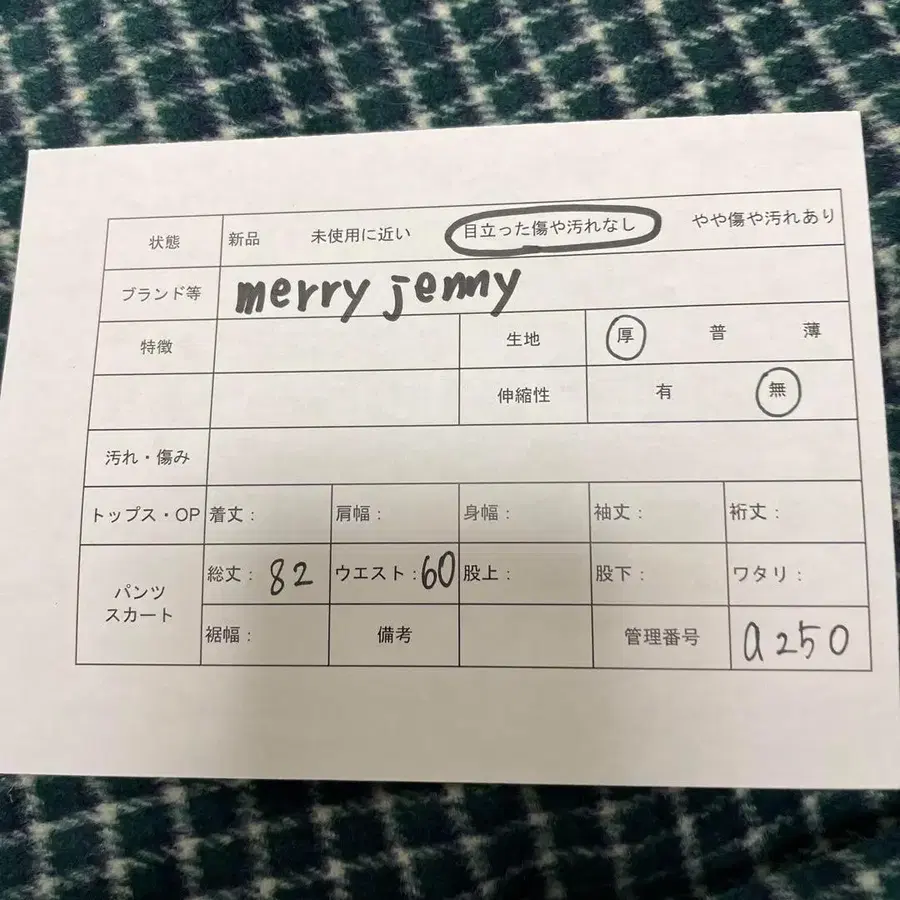 状態 新品 未使用に近い 目立った傷や汚れなし やや傷や汚れあり
ブランド等 merry jenny
特徴 生地 厚 普 薄
伸縮性 有 無
汚れ・傷み
トップス・OP 着丈: 肩幅: 身幅: 袖丈: 裄丈:
パンツ 総丈: 82 ウエスト: 60 股上: 股下: ワタリ:
スカート
裾幅: 備考 管理番号 a250